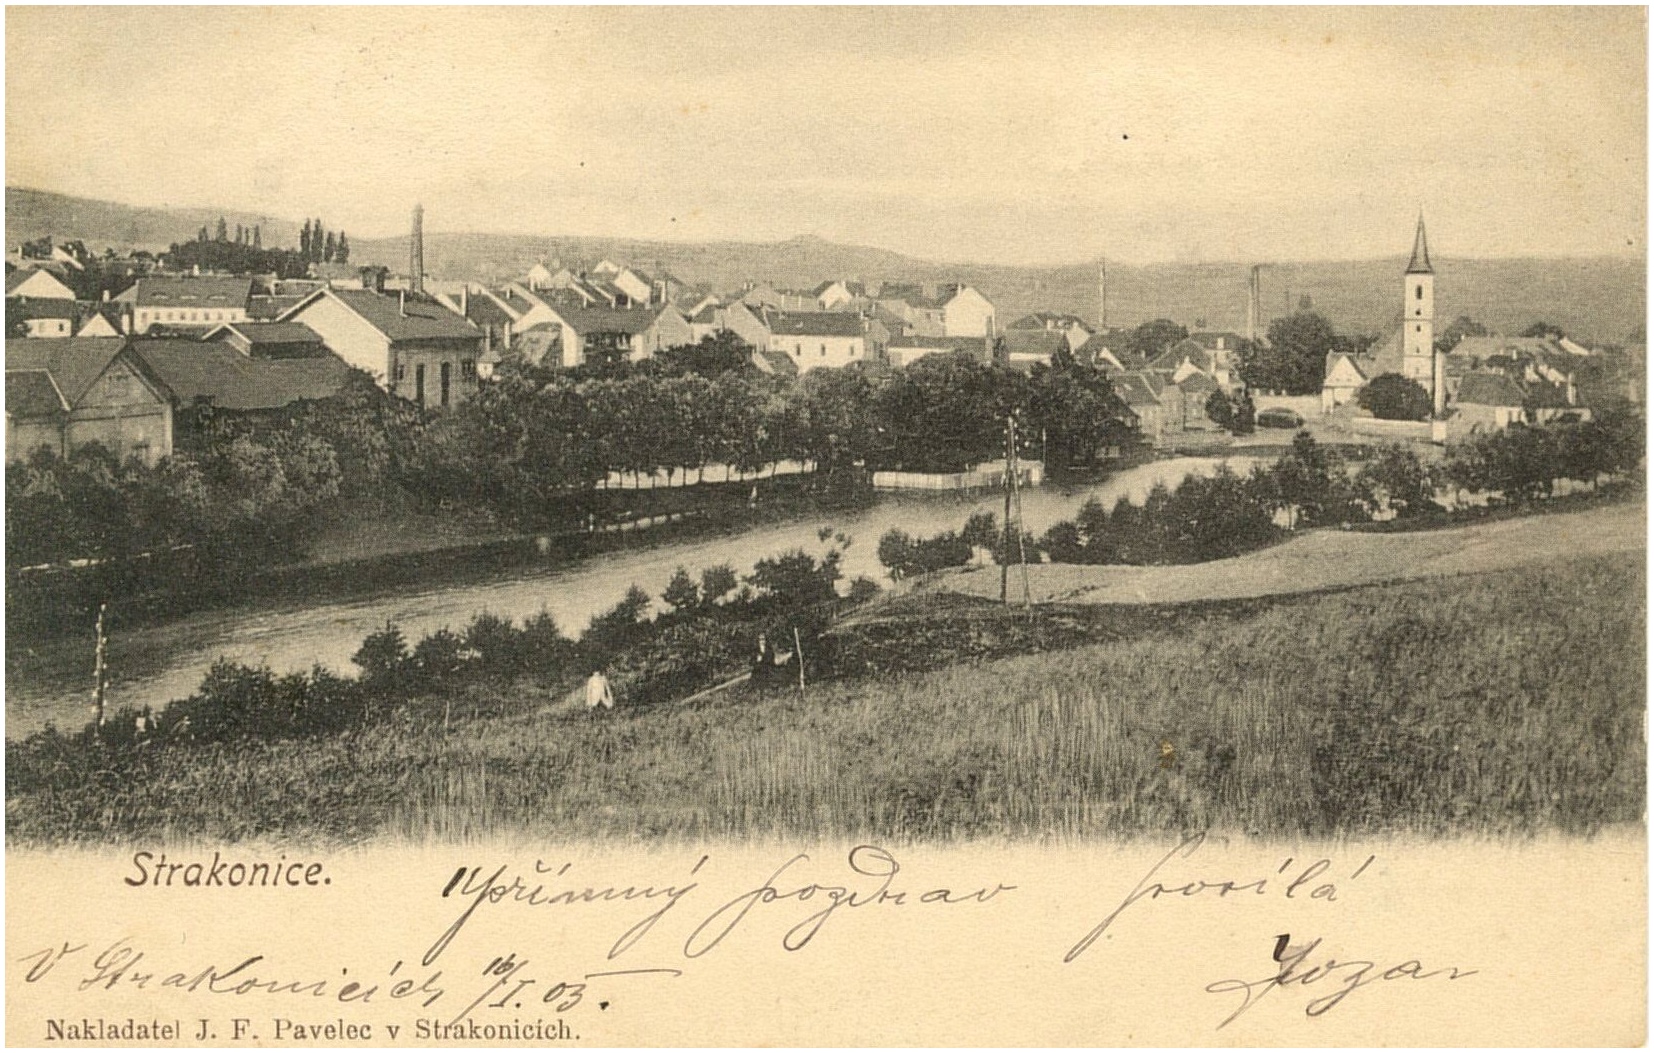 Strakonice.
Upřímný pozdrav posílá
V Strakonicích 16/I. 03.
Nakladatel J. F. Pavelec v Strakonicích.